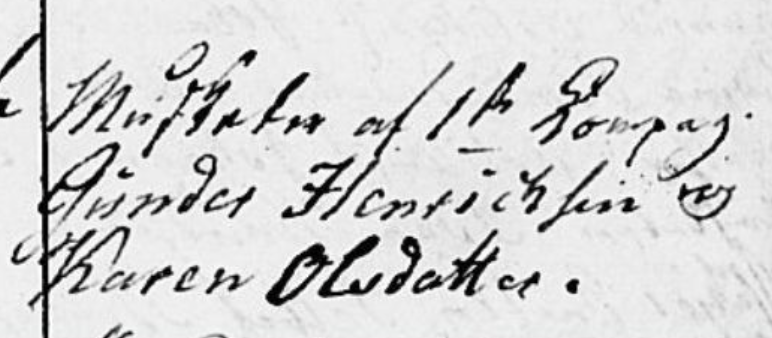 Musketer af 1te Compag.
Gunder Henrichsen og
Karen Olsdatter.